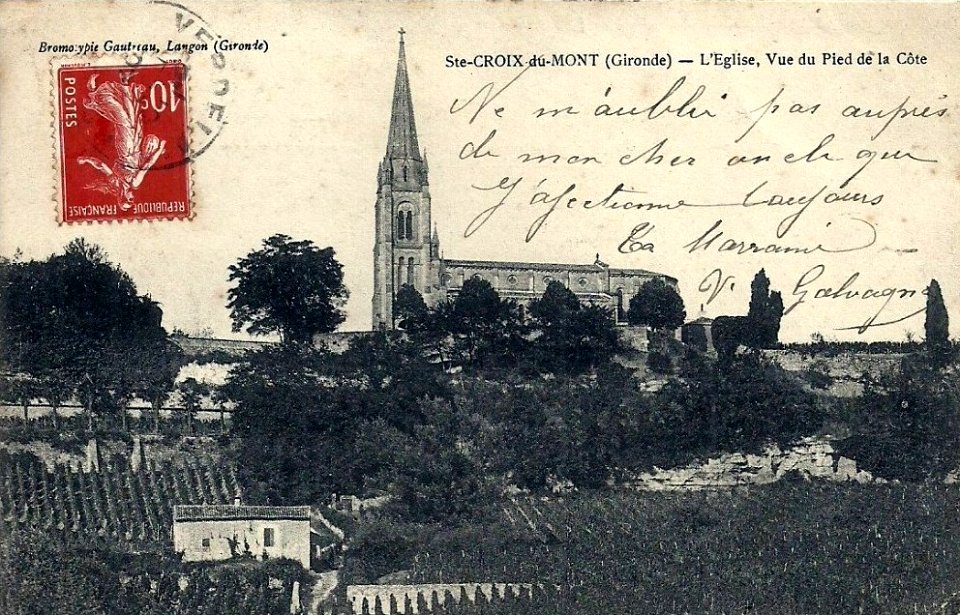 Bromotypie Gautreau, Langon (Gironde)
Ste-CROIX-du-MONT (Gironde) — L'Eglise, Vue du Pied de la Côte
VERDEL
10c
POSTES
REPUBLIQUE FRANÇAISE
Ne m'aublier pas auprés
de mon cher oncle que
J'afectionne toujours
Ta Marraine
V. Galvagn